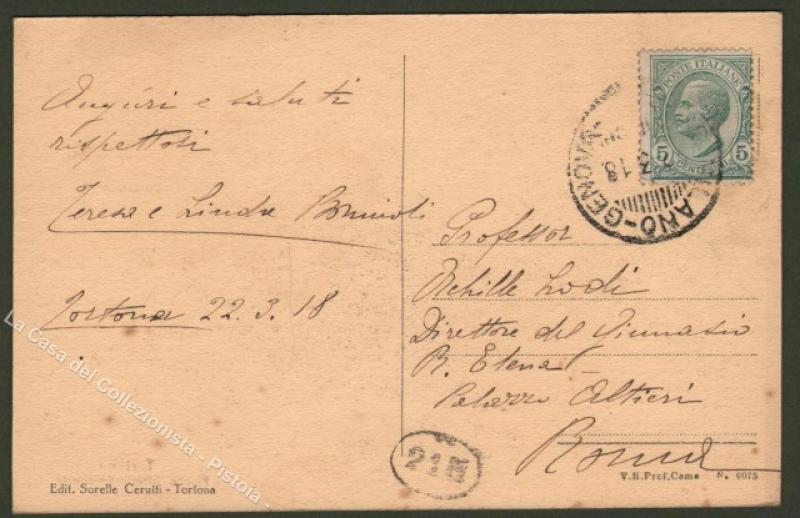 Auguri e saluti
rispettosi
Teresa e Linda
Tortona 22.3.18
Edit. Sorelle Cerutti - Tortona
POSTE ITALIANE
5 CENTESIMI 5
MILANO-GENOVA
3 18
Professor
Achille Lodi
Direttore del Ginnasio
R. Elena
Palazzo Altieri
Roma
V.B. Prof. Come N. 9075
La Casa del Collezionista - Pistoia -